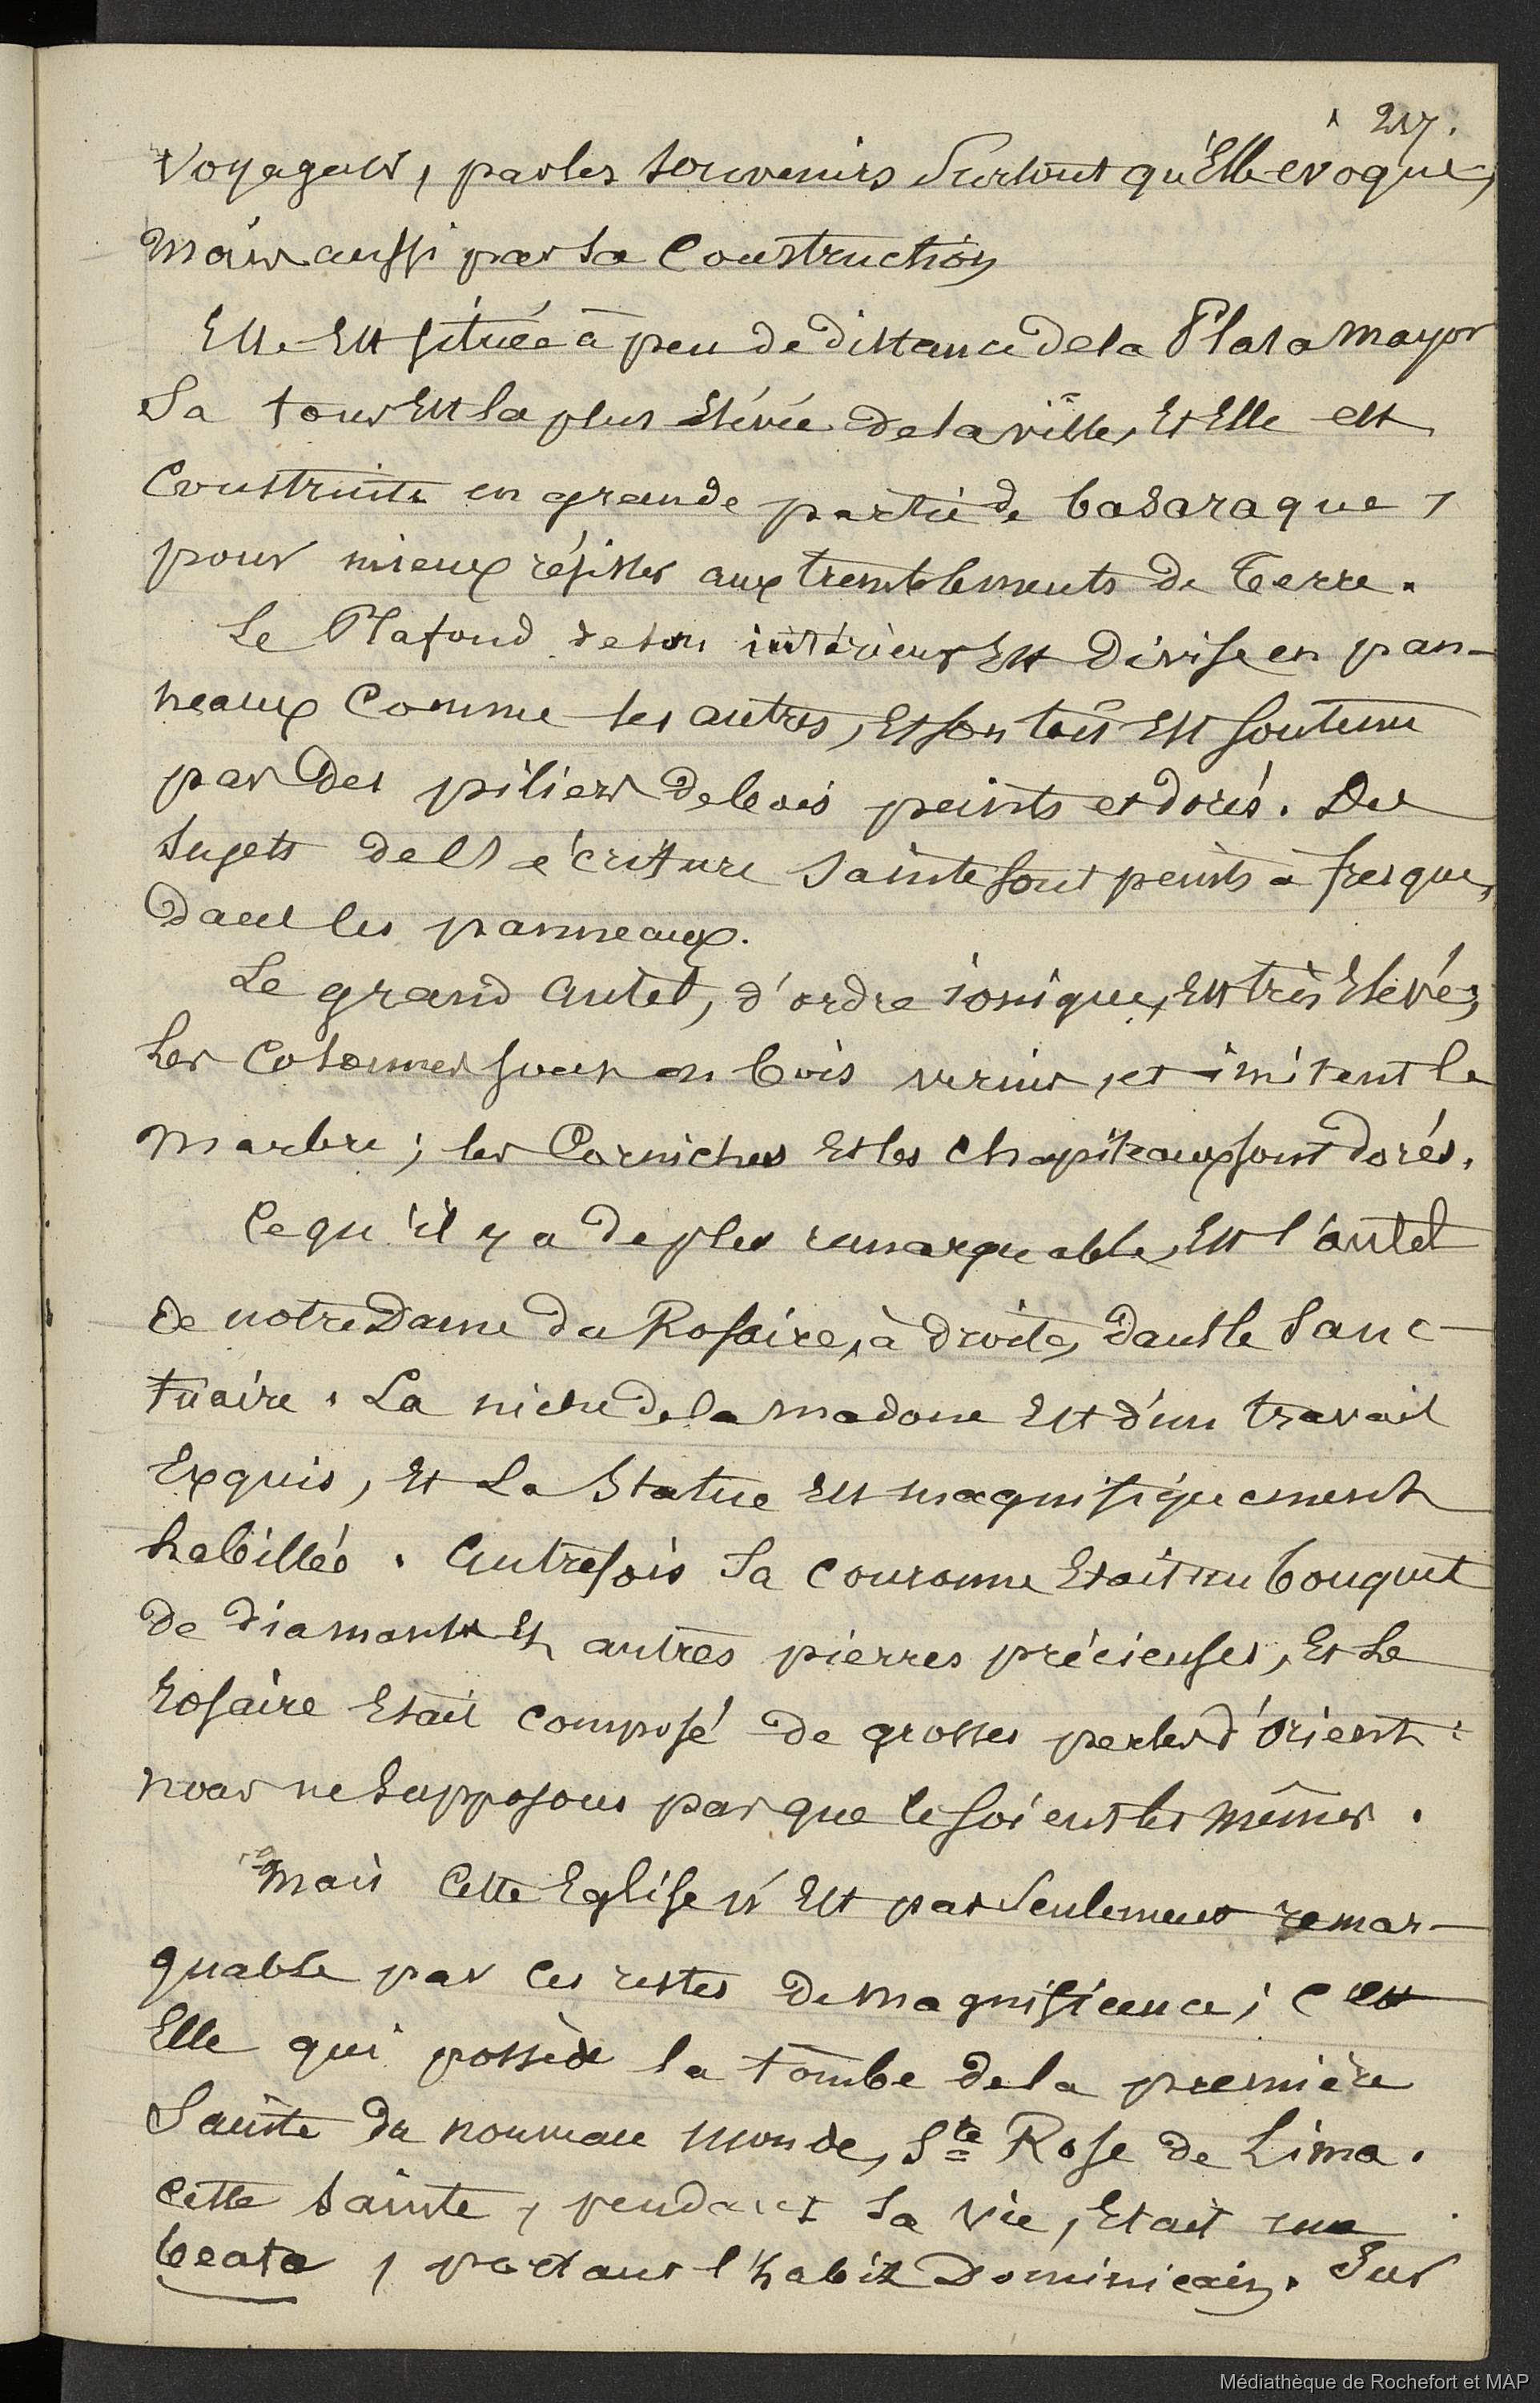 217.
Voyageurs, par les souvenirs surtout qu'Elle evoque,
mais aussi par sa Construction
Elle Est située à peu de distance de la Plasa mayor
Sa tour Est la plus Elévée de la ville, Et Elle est
Construite en grande partie de basaraque,
pour mieux résister aux tremblements de Terre.
Le Plafond de son intérieur Est divisé en pan-
neaux Comme les autres, Et son toit Est soutenu
par Des piliers de bois peints et dorés. Des
sujets de l'écriture Sainte sont peints à fresque,
Dans les panneaux.
Le grand autel, d'ordre ionique, Est très Elevé,
Les Colonnes sont en bois vernis, et imitent le
marbre; les Corniches Et les Chapiteaux sont dorés.
Ce qu'il y a de plus remarquable, Est l'autel
de notre Dame du Rosaire, à droite, dans le Sanc-
tuaire. La niche de la madone Est d'un travail
Exquis, Et La Statue Est magnifiquement
habillée. Autrefois Sa Couronne Etait un bouquet
de diamants Et autres pierres précieuses, Et Le
Rosaire Etait composé de grosses perles d'Orient:
nous ne supposons pas que ce soient les mêmes.
Mais Cette Eglise n'Est pas Seulement remar-
quable par ces restes de magnificence; c'est
Elle qui possède la tombe de la première
Sainte du nouveau monde, Ste Rose de Lima.
Cette Sainte, pendant sa vie, Etait une
beata, portant l'habit Dominicain. Sur
Médiathèque de Rochefort et MAP